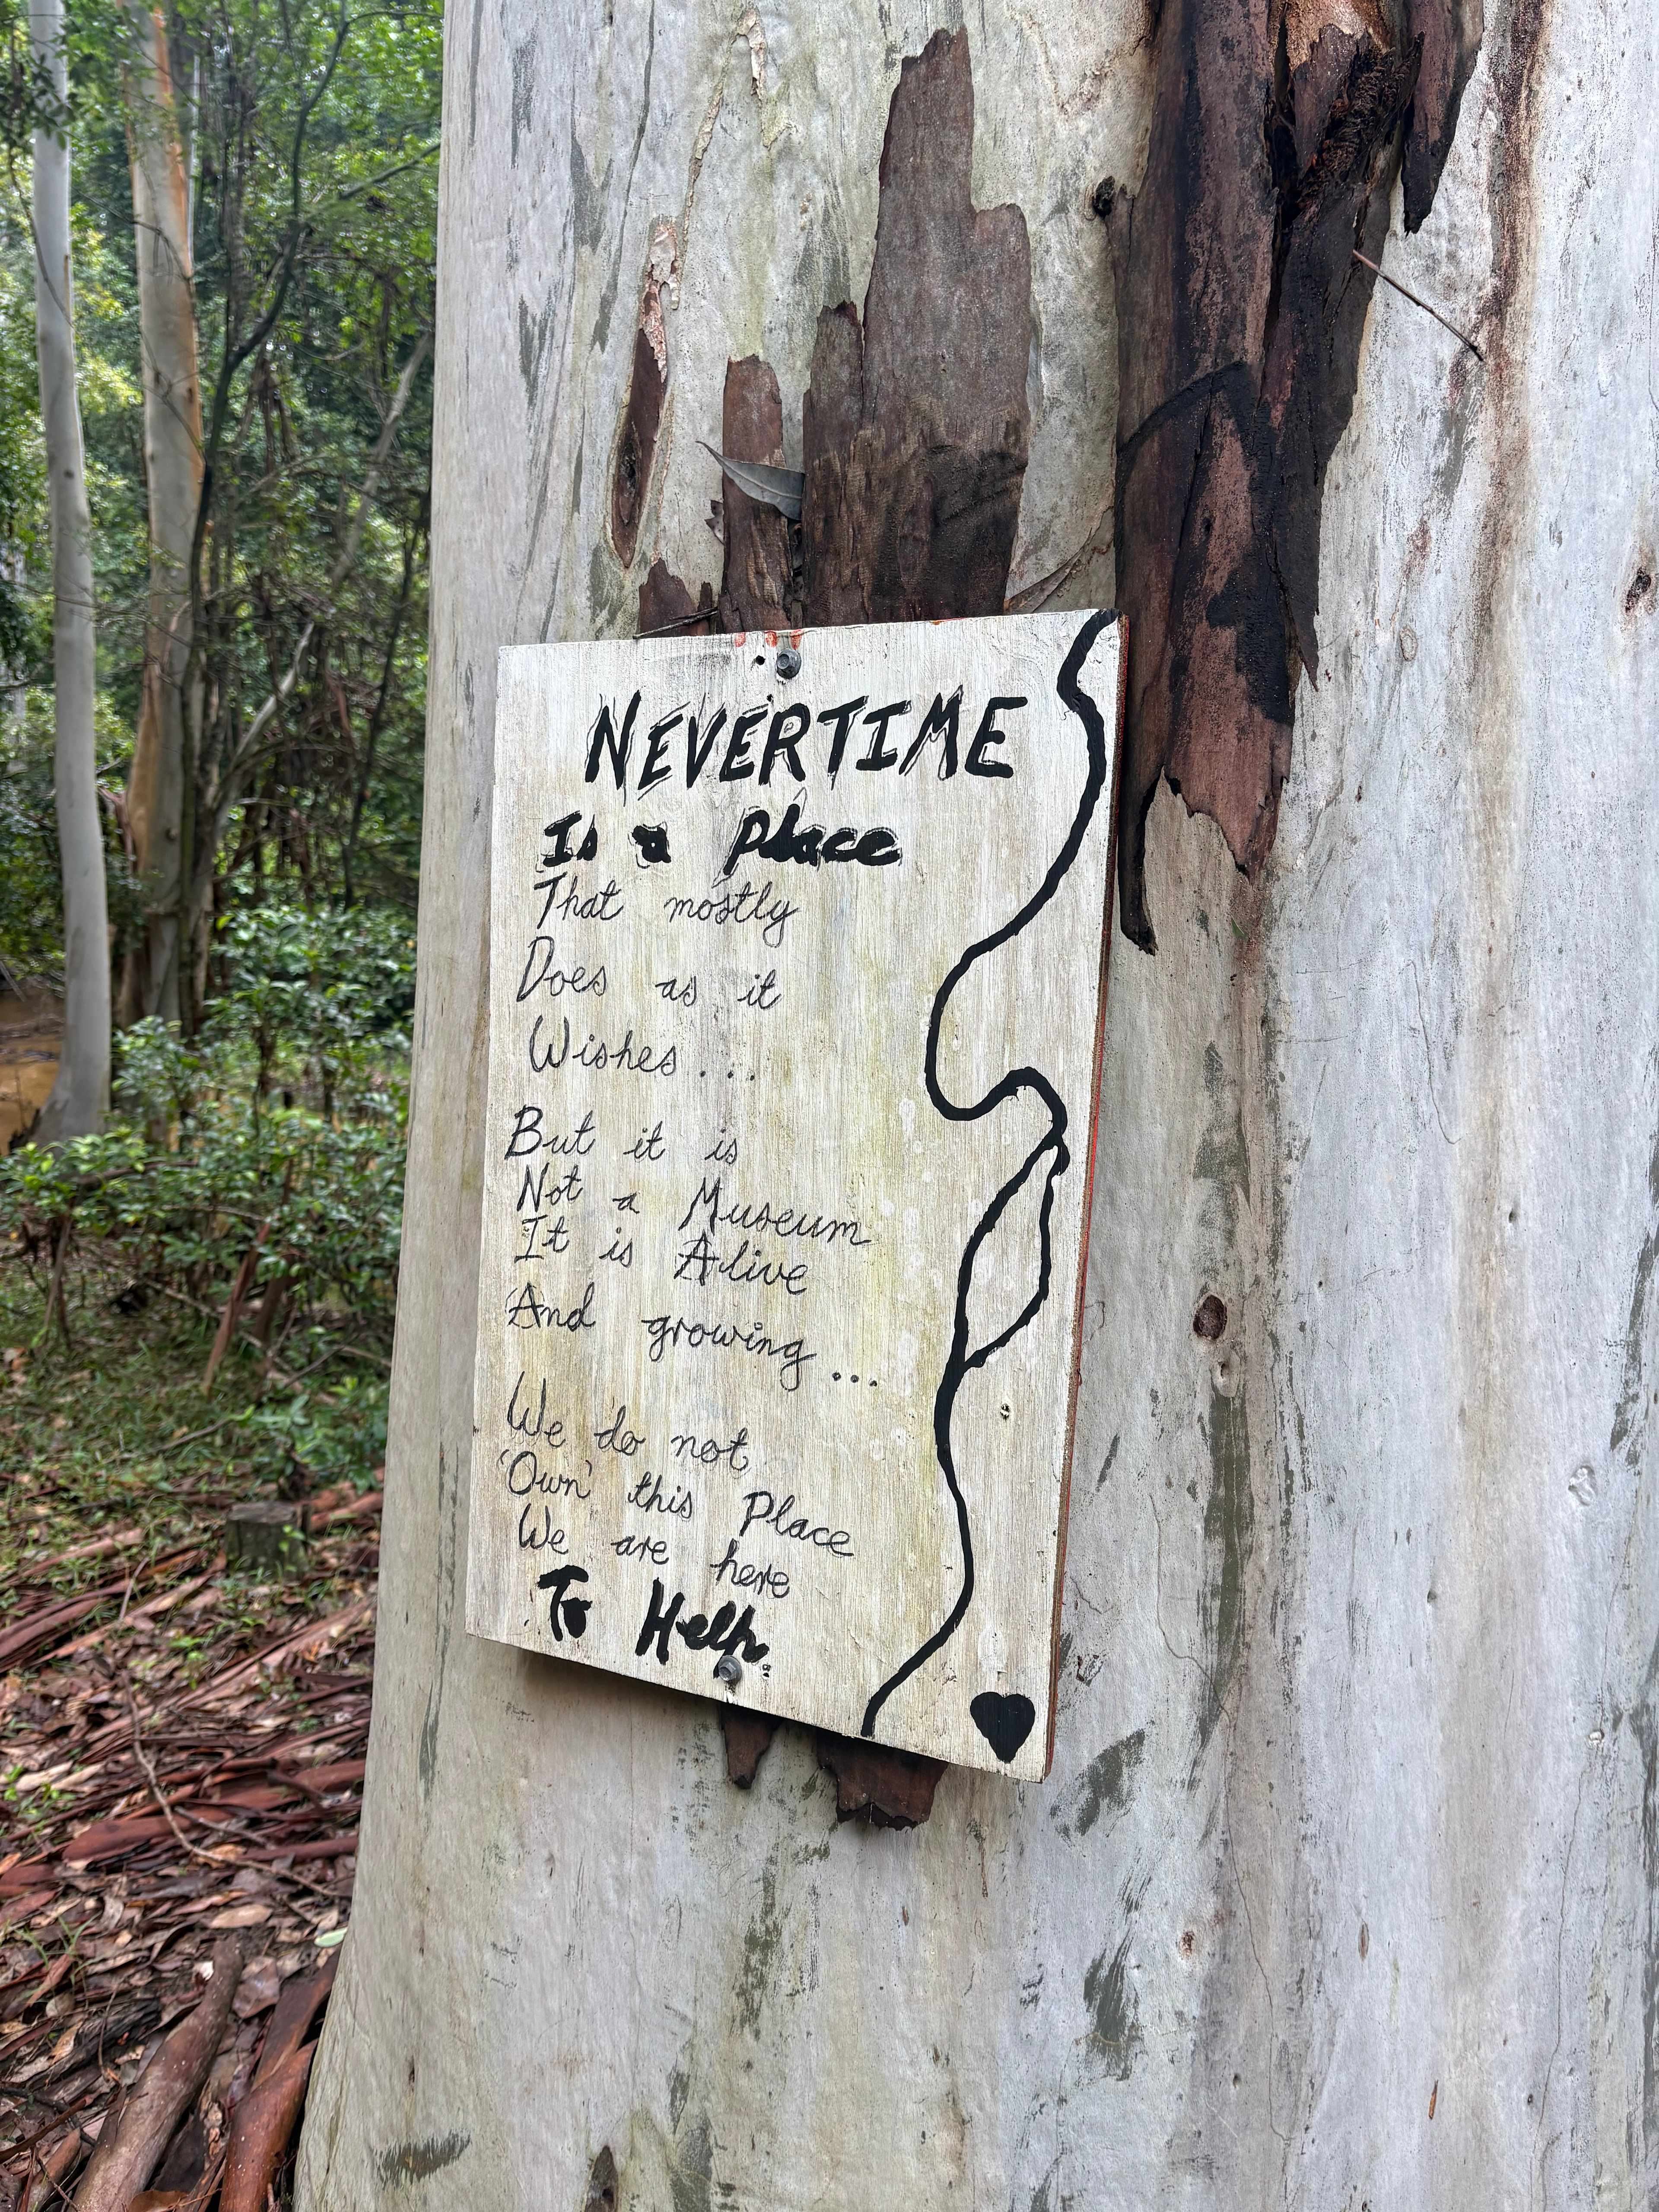 NEVERTIME
Is a place
That mostly
Does as it
Wishes...
But it is
Not a Museum
It is Alive
And growing...
We do not
'Own' this Place
We are here
To Help.